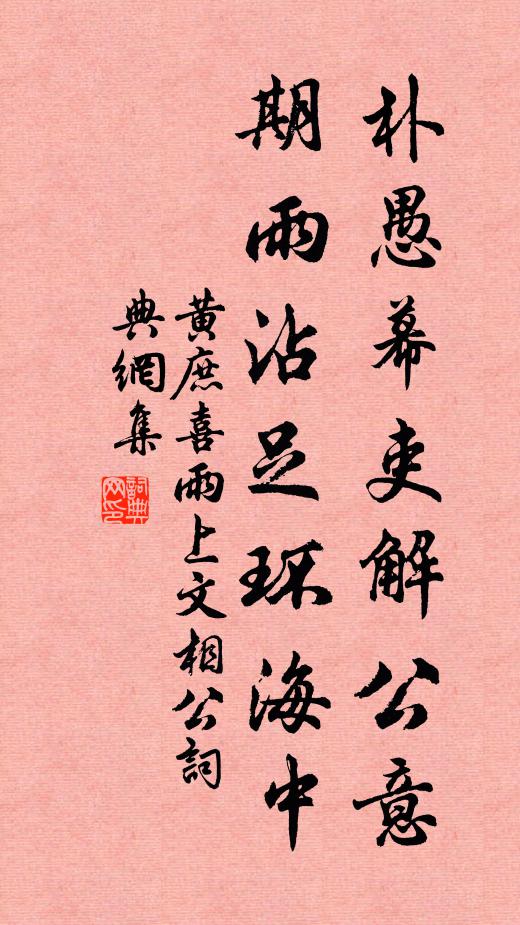 朴愚幕吏解公意
期雨沾足环海中
黄庶喜雨上文相公詞
典網集
詞典
网印